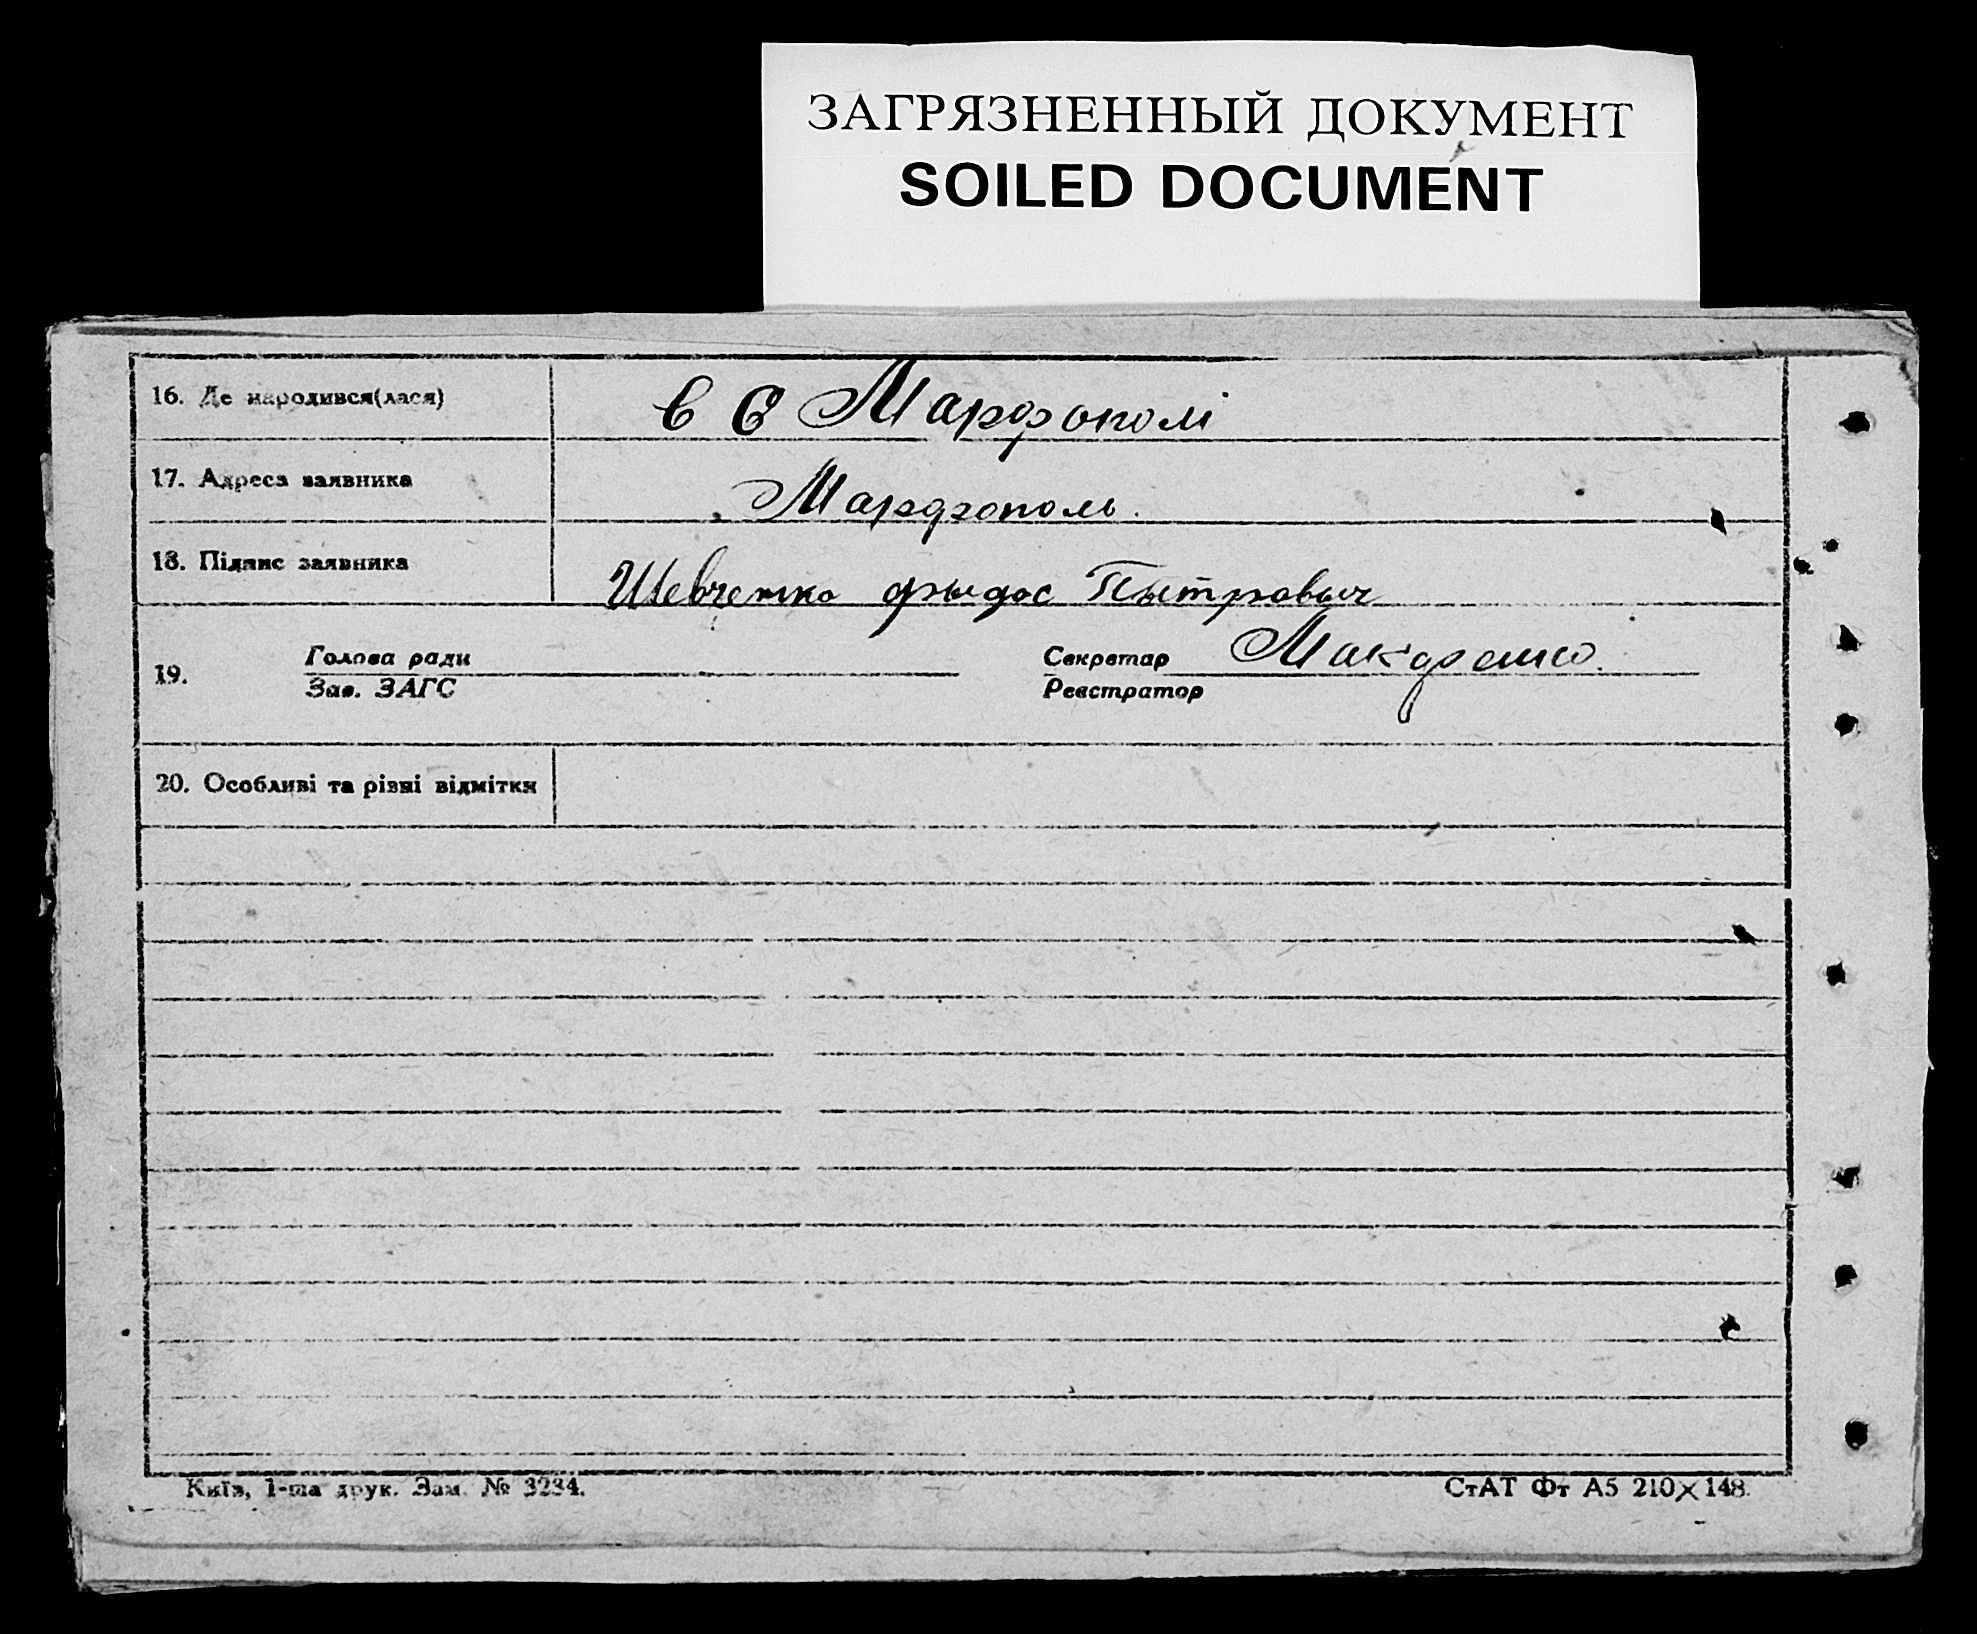 ЗАГРЯЗНЕННЫЙ ДОКУМЕНТ
SOILED DOCUMENT
16. Де народився(лася) в с Марфополі
17. Адреса заявника Марфополь.
18. Підпис заявника Шевченко Пытровыч
19. Голова ради Секретар
Зав. ЗАГС Реєстратор
20. Особливі та різні відмітки
Київ, 1-ша друк. Зам. № 3234. СтАТ Фт А5 210×148.